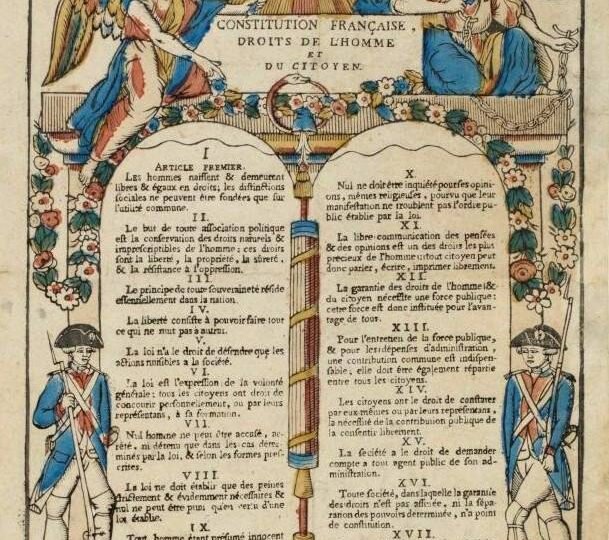 CONSTITUTION FRANÇAISE,
DROITS DE L'HOMME
ET
DU CITOYEN.
I
ARTICLE PREMIER.
Les hommes naissent & demeurent
libres & égaux en droits; les distinctions
sociales ne peuvent être fondées que sur
l'utilité commune.
II.
Le but de toute association politique
est la conservation des droits naturels &
imprescriptibles de l'homme : ces droits
sont la liberté, la propriété, la sûreté,
& la résistance à l'oppression.
III.
Le principe de toute souveraineté réside
essentiellement dans la nation.
IV.
La liberté consiste à pouvoir faire tout
ce qui ne nuit pas à autrui.
V.
La loi n'a le droit de défendre que les
actions nuisibles à la société.
VI.
La loi est l'expression de la volonté
générale ; tous les citoyens ont droit de
concourir personnellement, ou par leurs
représentans, à sa formation.
VII.
Nul homme ne peut être accusé, ar-
rêté, ni détenu que dans les cas déter-
minés par la loi, & selon les formes pres-
crites.
VIII.
La loi ne doit établir que des peines
strictement & évidemment nécessaires &
nul ne peut être puni qu'en vertu d'une
loi établie.
IX.
Tout homme étant présumé innocent
X.
Nul ne doit être inquiété pour ses opini-
ons, mêmes religieuses, pourvu que leur
manifestation ne troublent pas l'ordre pu-
blic établie par la loi.
XI.
La libre communication des pensées
& des opinions est un des droits les plus
précieux de l'homme : tout citoyen peut
donc parler, écrire, imprimer librement.
XII.
La garantie des droits de l'homme &
du citoyen nécessite une force publique :
cette force est donc instituée pour l'avan-
tage de tous.
XIII.
Pour l'entretien de la force publique,
& pour les dépenses d'administration,
une contribution commune est indispen-
sable ; elle doit être également répartie
entre tous les citoyens.
XIV.
Les citoyens ont le droit de constater
par eux-mêmes ou par leurs représentans,
la nécessité de la contribution publique de
la consentir librement.
XV.
La société a le droit de demander
compte a tout agent public de son ad-
ministration.
XVI.
Toute société, dans laquelle la garantie
des droits n'est pas assurée, ni la sépa-
ration des pouvoirs déterminée, n'a point
de constitution.
XVII